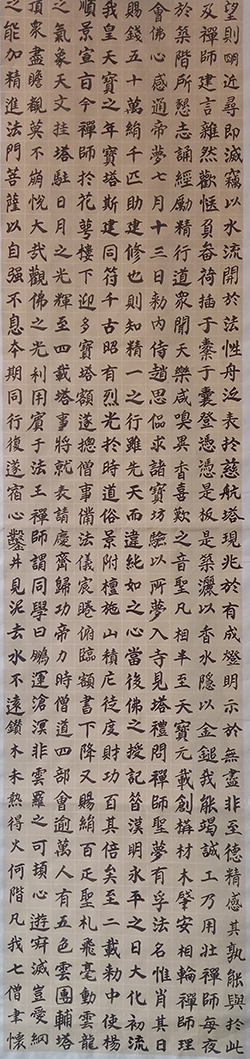 望則明近尋即滅竊以水流開於法性舟泛表於慈航塔現兆於有成燈明示於無盡非至德精感其孰能與於此
及禪師建言雜然歡愜負畚荷插于橐于囊登憑憑是板是築灑以香水隱以金鎚我能竭誠工乃用壯禪師每夜
於築階所懇志誦經勵精行道眾聞天樂咸嗅異香喜歎之音聖凡相半至天寶元載創構材木肇安相輪禪師理
會佛心感通帝夢七月十三日勑內侍趙思偘求諸寶坊驗以所夢入寺見塔禮問禪師聖夢有孚法名惟肖其日
賜錢五十萬絹千匹助建修也則知精一之行雖先天而違純如之心當後佛之授記昔漢明永平之日大化初流
我皇天寶之年寶塔斯建同符千古昭有烈光於時道俗景附檀施山積庀徒度財功百其倍矣至二載勑中使楊
順景宣旨令禪師於花萼樓下迎多寶塔額遂總僧事備法儀宸睠俯臨額書下降又賜絹百匹聖札飛毫動雲龍
之氣象天文挂塔駐日月之光輝至四載塔事將就表請慶齋歸功帝力時僧道四部會逾萬人有五色雲團輔塔
頂眾盡瞻覩莫不崩悅大哉觀佛之光利用賓于法王禪師謂同學曰鵬運滄溟非雲羅之可頓心遊寂滅豈愛網
之能加精進法門菩薩以自强不息本期同行復遂宿心鑿井見泥去水不遠鑽木未熱得火何階凡我七僧聿懷